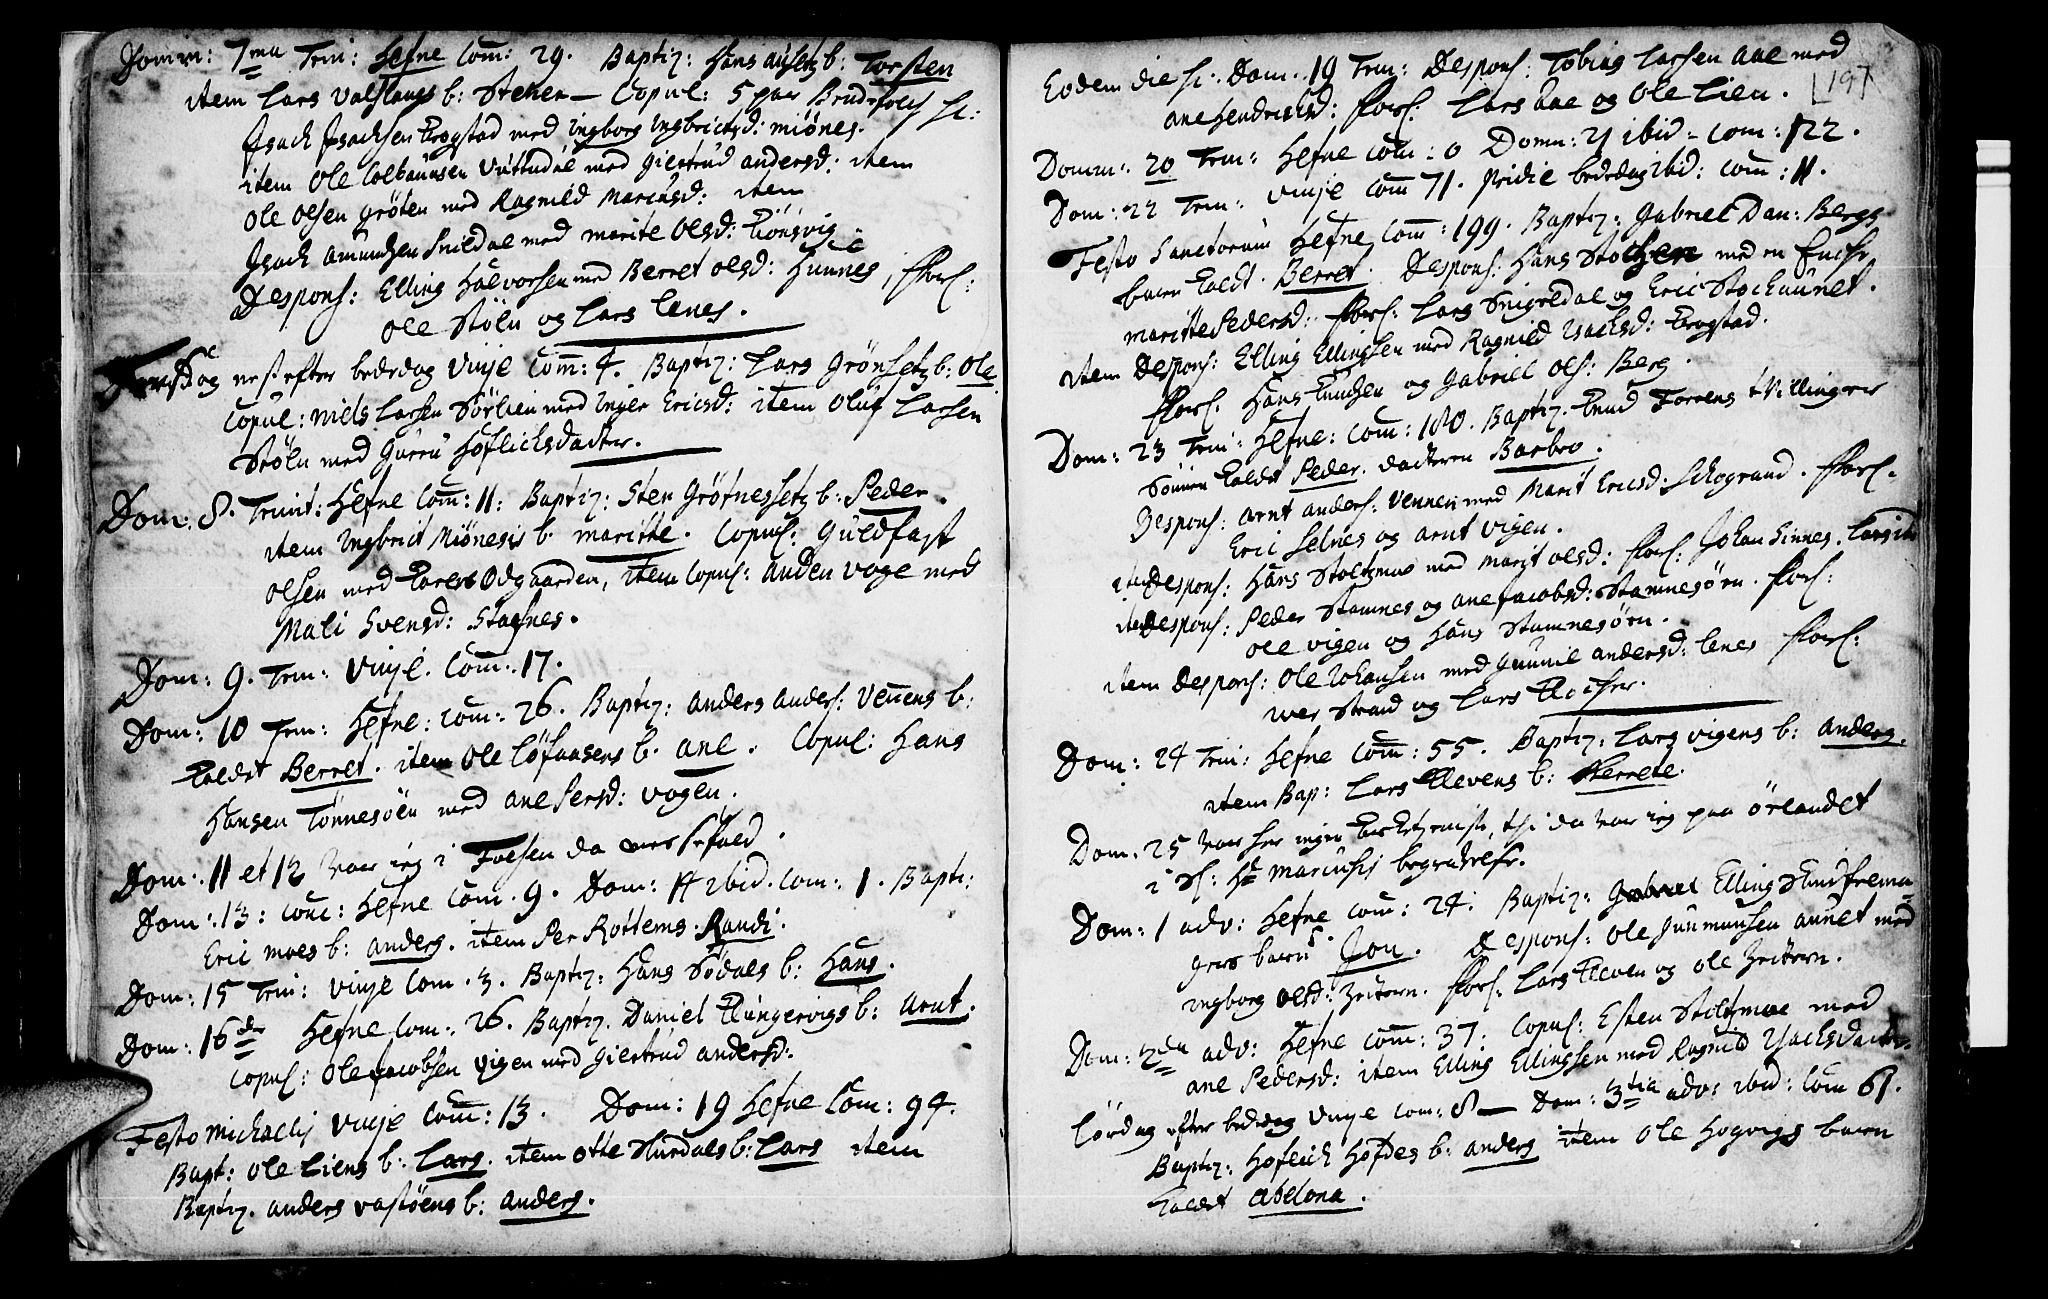 Domin: 7ma Trin: Hefne Com: 29. Baptiz: Hans aúsetz b: Torsten
item Lars Valslangs b: Stener — Copul: 5 par Brudefolck sc:
Jsach Jsachsen Krogstad med Ingborg Ingbrictsd: miönes.
item Ole Colbaúnsen Vúttudal med Giertrud andersd: item
Ole Olsen gröten med Ragnild Marcusd: item
Jsach amundsen Snildal med marite Olsd: Kiönsvig
Despons: Elling Halvorsen med Berret olsd: Hunnes, Spors:
Ole Stöln og Lars Lenes.
Torsdag nest efter bededag Vinje Com: 4. Baptiz: Lars Grönsetz b: Ole
Copul: Niels Larsen Sörlien med Inger Ericsd: item Oluf Larsen
Stöln med Gurru Hoflichsdatter.
Dom: 8. Trinit: Hefne Com: 11: Baptiz: Sten Grötnessetz b: Peder.
item Ingbrict Miönesis b. maritte. Copul: Guldfast
Olsen med Karen Odgaarden, item Copul: anden voge med
Mali Svensd: Stafnes.
Dom: 9. Trin: Vinje. Com: 17.
Dom: 10 Trin: Hefne: Com: 26. Baptiz: anders anders: Vennens b:
Kaldet Berret. item Ole Löfaasens b. ane. Copul: Hans
Hansen Tönnesöen med ane Persd: vogen.
Dom: 11 et 12 var ieg i Fosen da
Dom: 13: Com: Hefne Com. 9. Dom: 14 ibid. Com: 1. Bapt:
Eric moes b: anders. item Per Rottems Randi.
Dom: 15 Trin: Vinje Com. 3. Baptiz: Hans Södals b: Hans.
Dom: 16de Hefne Com: 26. Baptiz. Daniel Klúngervigs b: arnt.
Copul: Ole Jacobsen vigen med Giertrud andersd:
Festo Michaelis Vinje Com: 13. Dom: 19 Hefne Com: 94.
Bapt: Ole Liens b: Lars. item otte Stúrdals b: Lars item
Baptiz. anders vastöens b: anders.
197
Eodem die sc: Dom. 19 Trin: Despons: Tobias Larsen Aae med
ane Hendrichsd: Spors: Lars Aae og Ole Lien.
Domin: 20 Trin: Hefne Com: 0 Domin: 21 ibid: Com: 122.
Dom: 22 Trin: Vinje Com 71. Pridie bededag ibid: Com: 11.
Festo Sanctorum Hefne Com: 199. Baptiz: Gabriel Dan: Bergs
barn Kaldt. Berret. Despons: Hans med en Enche
maritte Pedersd: Spors: Lars Snigeldal og Eric Stochaunet.
item Despons: Elling Ellingsen med Ragnild Isachsd: Krogstad.
Spors. Hans Knudsen og Gabriel Ols: Berg.
Dom: 23 Trin: Hefne: Com: 180. Baptiz. Knud Forrens tvillinger
Sönnen Kaldet Peder. dotteren Barbro.
Despons: arnt anders: Vennen med Marit Ericsd: Schogrand. Spors.
Eric Selnes og arnt vigen.
item Despons: Hans Stoltzmoe med Marit Olsd: Spors: Johan Sinnes. Lars
item Despons: Peder Stamnes og ane Jacobsd: Stamnesörn. Spors:
Ole vigen og Hans Stamnesörn.
item Despons: Ole Johansen med Gunnil andersd: Lenes Spors:
Iver Strand og Lars
Dom: 24 Trin: Hefne Com: 55. Baptiz: Lars vigens b: anders.
item Bap: Lars Klevens b:
Dom: 25 var her ingen Kircketieniste, thi da var ieg paa Örlandet
i Sl: Hr Marcusis begravelse.
Dom: 1 adv: Hefne Com: 24: Baptiz: Elling
barn Jon. Despons: Ole Gunmundsen aunet med
Ingborg Olsd: Spors: Lars Kleven og Ole
Dom: 2da adv: Hefne Com: 37: Copul: Esten Stoltzmoe med
ane Pedersd: item Elling Ellingsen med Ragnild Isachsdatter.
Lördag efter bededag Vinje Com: 8 — Dom: 3tia adv: ibid: Com 61.
Baptiz: Hoflich Hofdes b: anders item Ole Hogvigs barn
Kaldet Abelona.